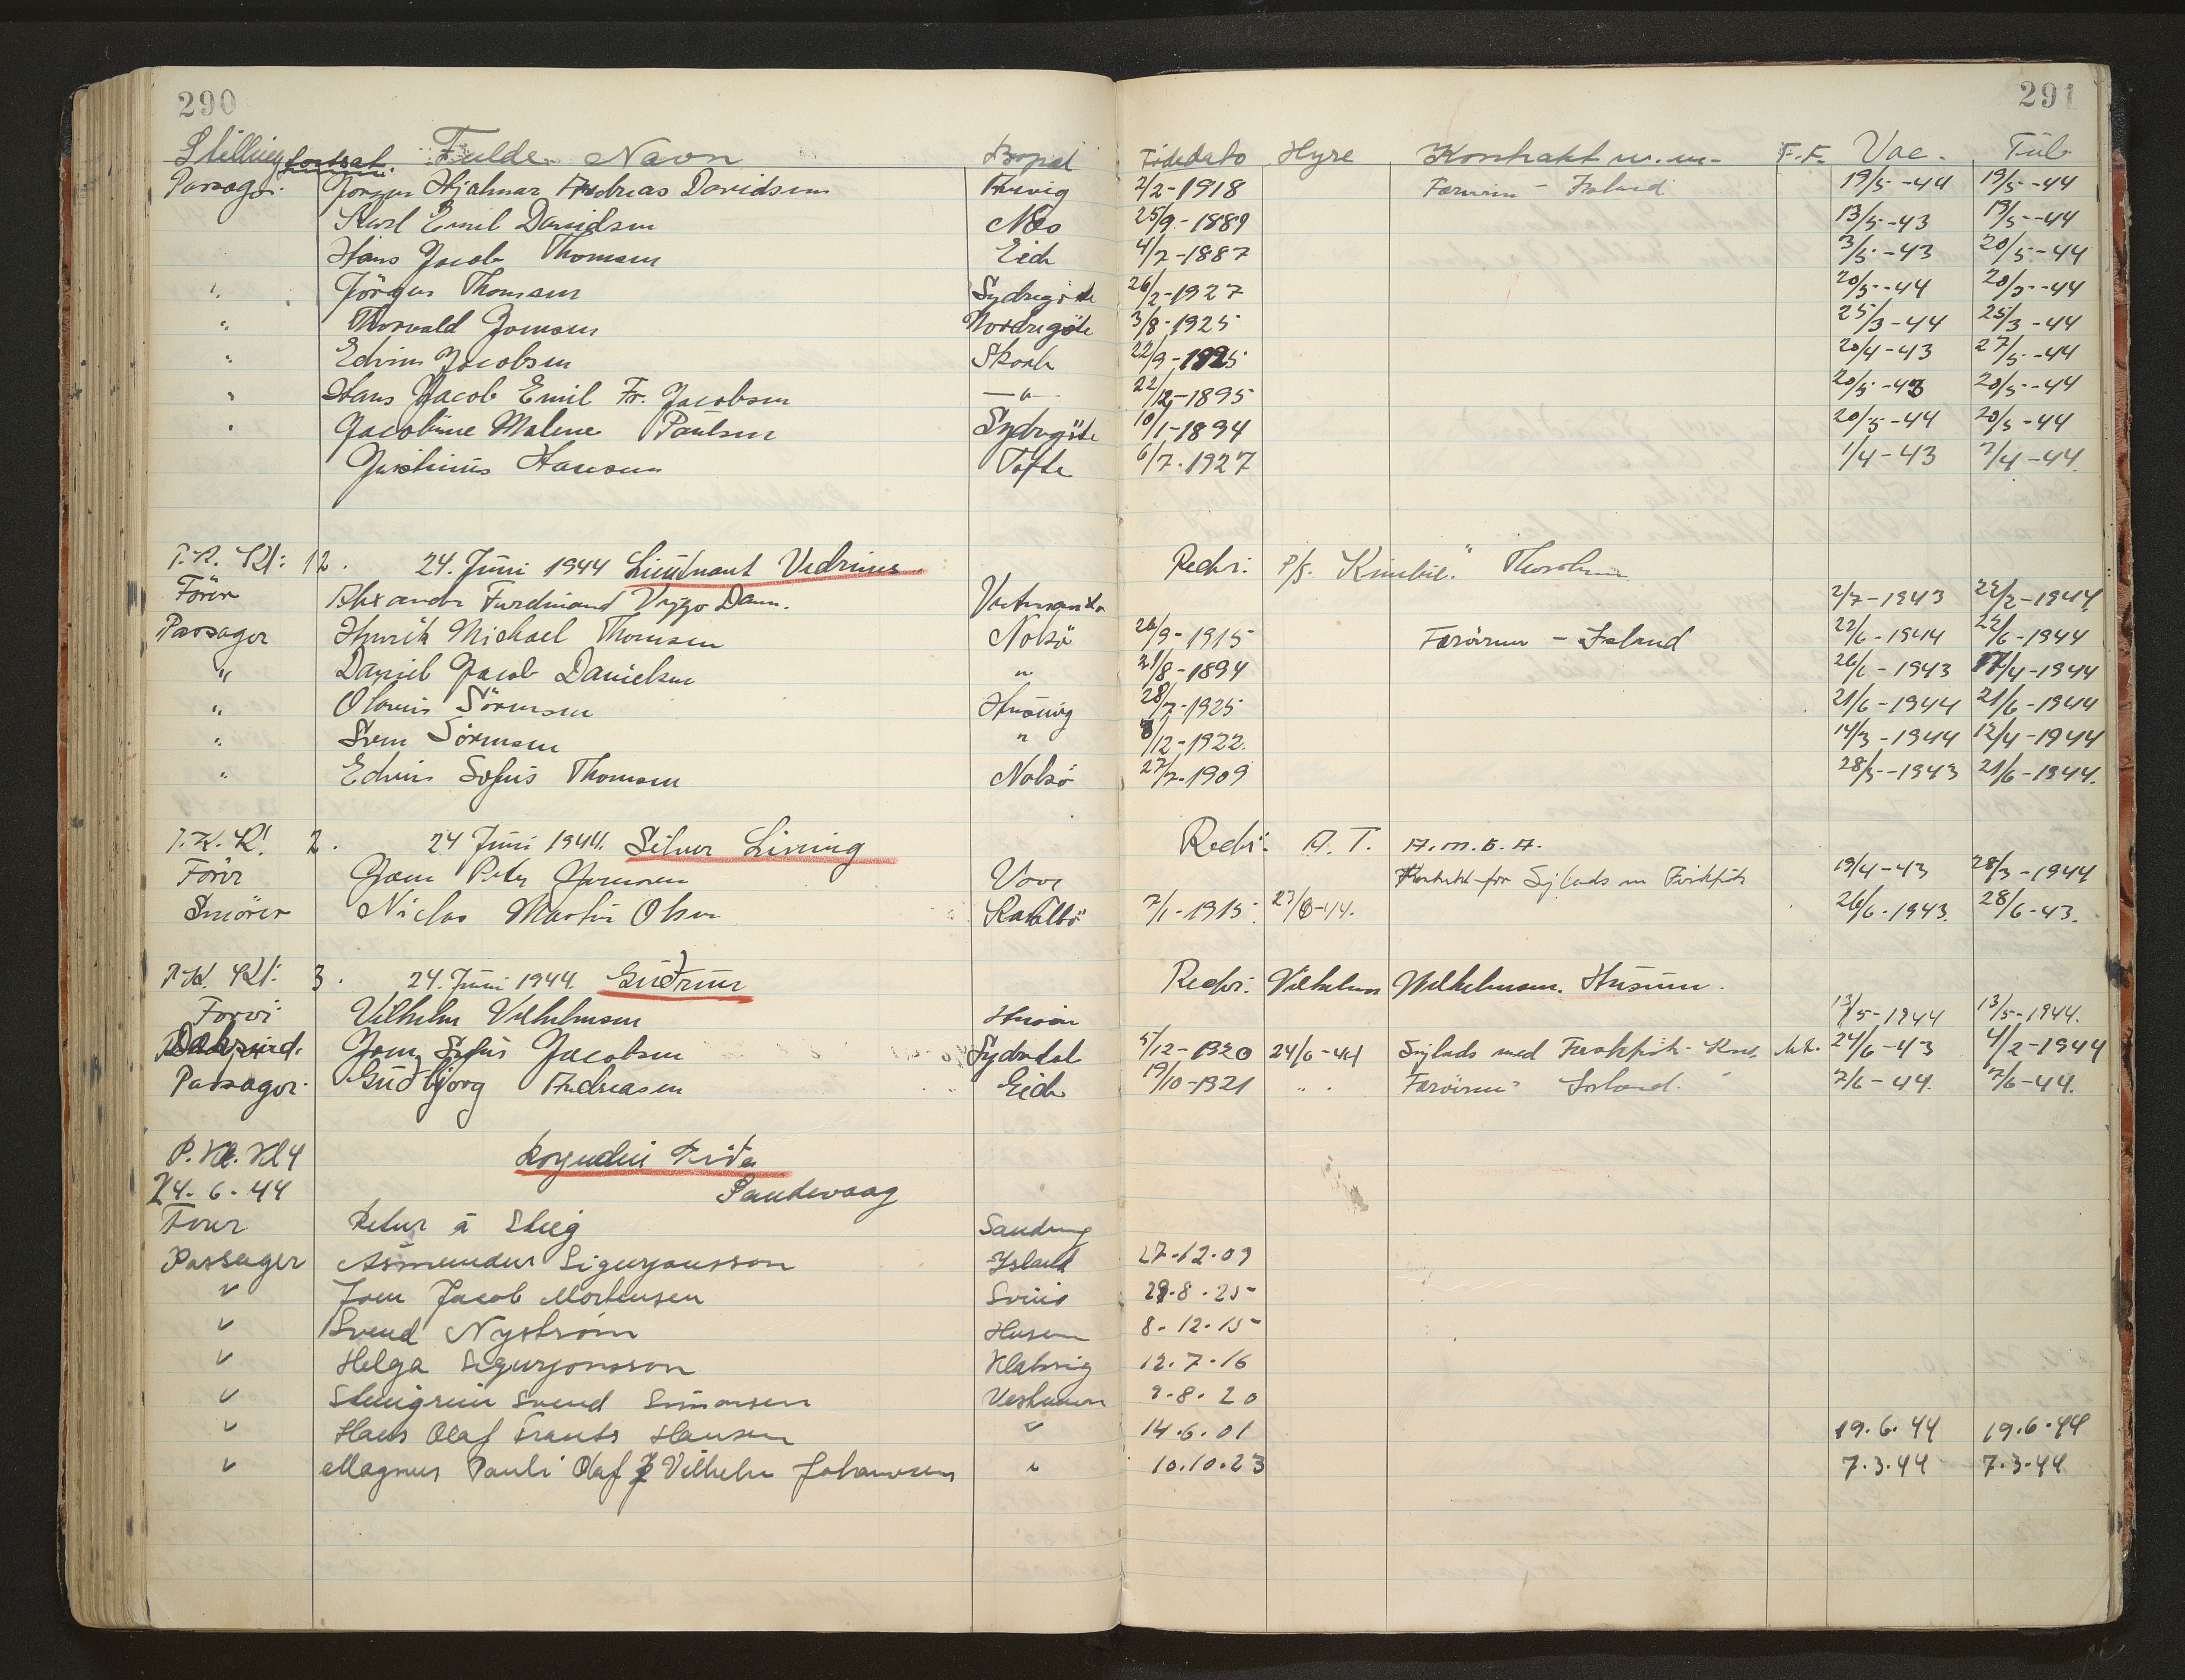 290 291
Stilling fortsat. Fulde Navn Bopæl Fødedato Hyre Kontrakt m.m. F.F. Vac. Tub
Passager. Jørgen Hjalmar Andreas Davidsen 2/2-1918 Færøerne - Island 19/5-44 19/5-44
Karl Emil Davidsen Næs 25/9-1889 13/5-43 19/5-44
Hans Jacob Thomsen Eide 4/7-1887 3/5-43 20/5-44
" Jörgen Thomsen Sydregöte 26/2-1927 20/5-44 20/5-44
" Thorvald Joensen Nordregöte 3/8-1925 25/3-44 25/3-44
" Edvin Jacobsen Skaale 22/9-1925 20/4-43 27/5-44
" Hans Jacob Emil Fr. Jacobsen —"— 22/12-1895 20/5-43 20/5-44
" Jacobine Malene Paulsen Sydregöte 10/1-1894 20/5-44 20/5-44
Justinus Hansen Tofte 6/7-1927 1/4-43 7/4-44
P.K. Kl: 12. 24. Juni 1944 Lieutnant Vedrines Redri: P/f. "Kimbil" Thorshavn
Förer Alexander Ferdinand Viggo Dam. Vestmanna 2/7-1943 22/2-1944
Passager Henrik Michael Thomsen Nolsö 26/9-1915 Færöerne - Island 22/6-1944 22/6-1944
" Daniel Jacob Danielsen " 21/8-1894 26/6-1943 17/4-1944
" Olavus Sörensen Husevig 28/7-1925 21/6-1944 21/6-1944
" Sven Sörensen " 8/12-1922. 14/3-1944 12/4-1944
" Edvin Sofus Thomsen Nolsö 27/7-1909 28/5-1943 21/6-1944.
P.K. Kl. 2. 24 Juni 1944. Silver Lining Redri: A. T. A.m.b.A.
Förer Joen Peter Joensen Vaag Kontrakt for Sejlads m Fiskefrfr 19/4-43 28/3-1944
Smörer Niclas Martin Olsen Kvalbö 7/1-1915 27/6-44. 26/6-1943. 28/6-43.
P.K. Kl: 3. 24. Juni 1944. Guðrun Redri: Vilhelm Vilhelmsen. Husum.
Förer Vilhelm Vilhelmsen Husum 13/5-1944 13/5-1944.
Joen Sofus Jacobsen Sydradal 5/12-1920 24/6-44 Sejlads med 24/6-43 4/2-1944
Passager. Guðbjörg Andreasen Eide 19/10-1921 " " Færöerne - Island. 7/6-44. 7/6-44.
P.K. Kl 4 Kogndin Frida
24.6.44 Sandevaag
Förer Petur á Steig Sandevaag
Passager Asmundur Sigurjonsson Island 27.12.09
" Joen Jacob Mortensen Svinö 29.8.25
" Svend Nyström Husum 8.12.15
" Helga Sigurjonsson Klaksvig 12.7.16
" Steingrim Svend Simonsen Vestmann 9.8.20
" Hans Olaf Frants Hansen " 14.6.01 19.6.44 19.6.44
" Magnus Pauli Olaf Vilhelm Johannesen " 10.10.23 7.3.44 7.3.44